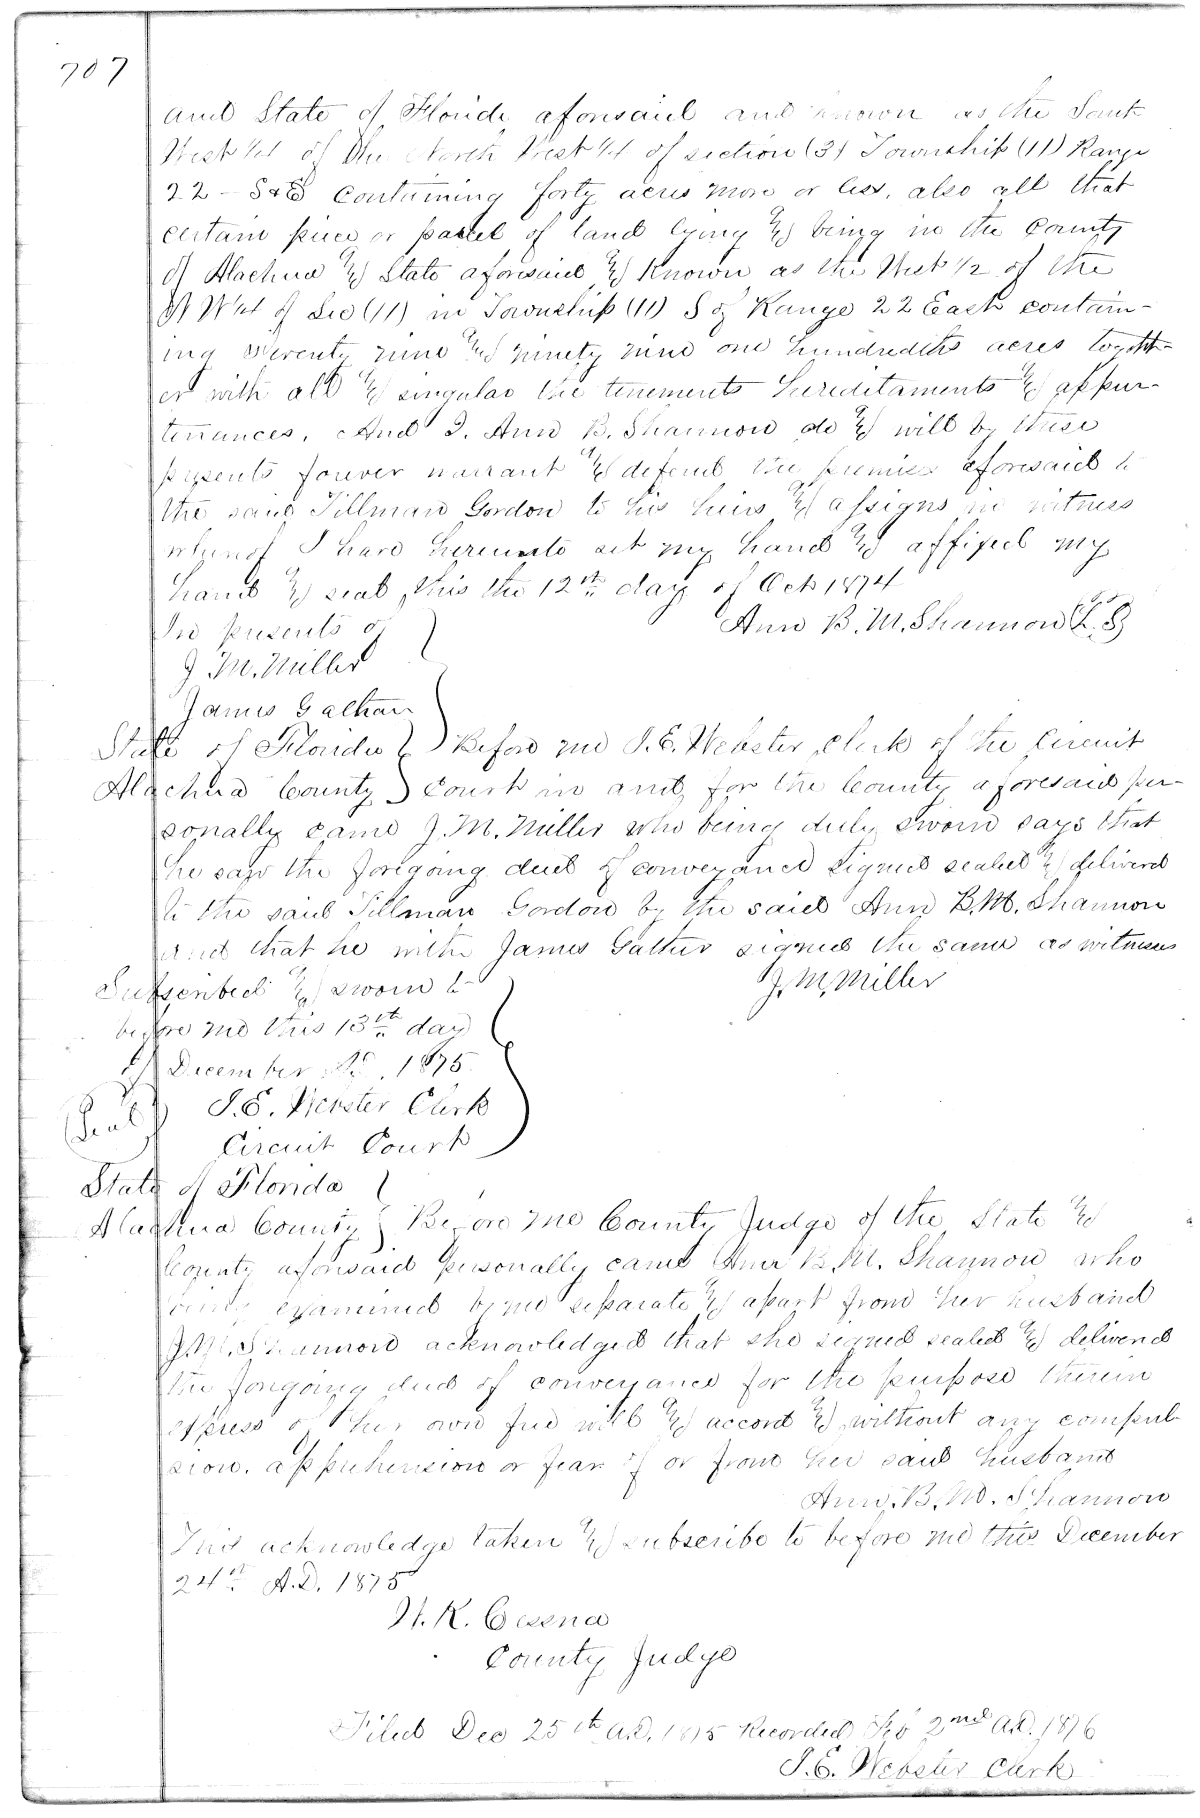 707
and State of Florida aforesaid and known as the South
West 1/4 of the North West 1/4 of section (3) Township (11) Range
22 - S & E containing forty acres more or less, also all that
certain piece or parcel of land lying & being in the County
of Alachua & State aforesaid & known as the West 1/2 of the
N W 1/4 of Sec (11) in Township (11) S of Range 22 East contain-
ing seventy nine & ninety nine one hundredths acres togeth-
er with all & singular the tenements hereditaments & appur-
tenances. And I, Ann B. Shannon do & will by these
presents forever warrant & defend the premises aforesaid to
the said Tillman Gordon to his heirs & assigns in witness
whereof I have hereunto set my hand & affixed my
hand & seal, this the 12th day of Oct 1874
In presents of
Ann B. M. Shannon (L.S)
J. M. Miller
James Gathan
State of Florida } Before me J. E. Webster, Clerk of the Circuit
Alachua County } Court in and for the County aforesaid per-
sonally came J. M. Miller who being duly sworn says that
he saw the foregoing deed of conveyance signed sealed & delivered
to the said Tillman Gordon by the said Ann B. M. Shannon
and that he with James Gather signed the same as witnesses
Subscribed & sworn to
J. M. Miller
before me this 13th day
of December AD. 1875
(Seal) J. E. Webster Clerk
Circuit Court
State of Florida }
Alachua County } Before me County Judge of the State &
County aforesaid personally came Ann B. M. Shannon who
being examined by me separate & apart from her husband
J. M. Shannon acknowledged that she signed sealed & delivered
the foregoing deed of conveyance for the purpose therein
express of her own free will & accord & without any compul-
sion, apprehension or fear of or from her said husband
Ann. B. M. Shannon
This acknowledge taken & subscribe to before me this December
24th A.D. 1875
W. K. Cessna
County Judge
Filed Dec 25th A.D. 1875 Recorded Feb 2nd A.D. 1876
J. E. Webster Clerk